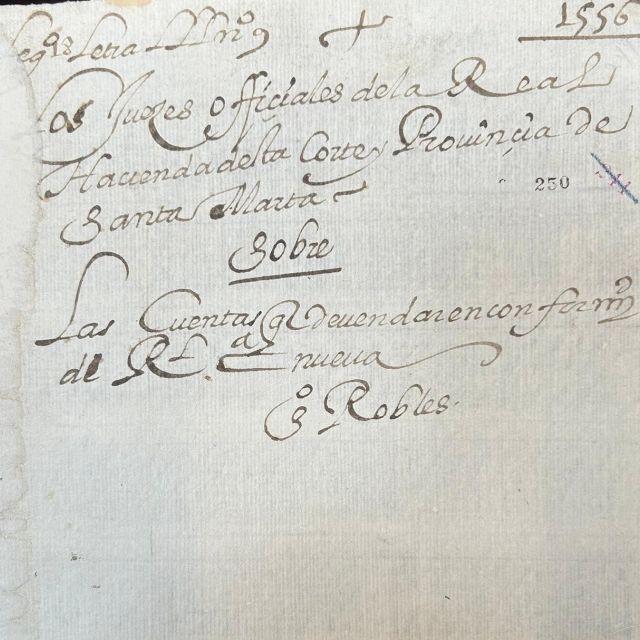 Letra nº 9 1556
Los Juezes officiales de la Real
Hacienda desta Corte y Provinçia de
Santa Marta
230
Sobre
Las Cuentas q deven dar en conformd
de Rl nueva
sº Robles.